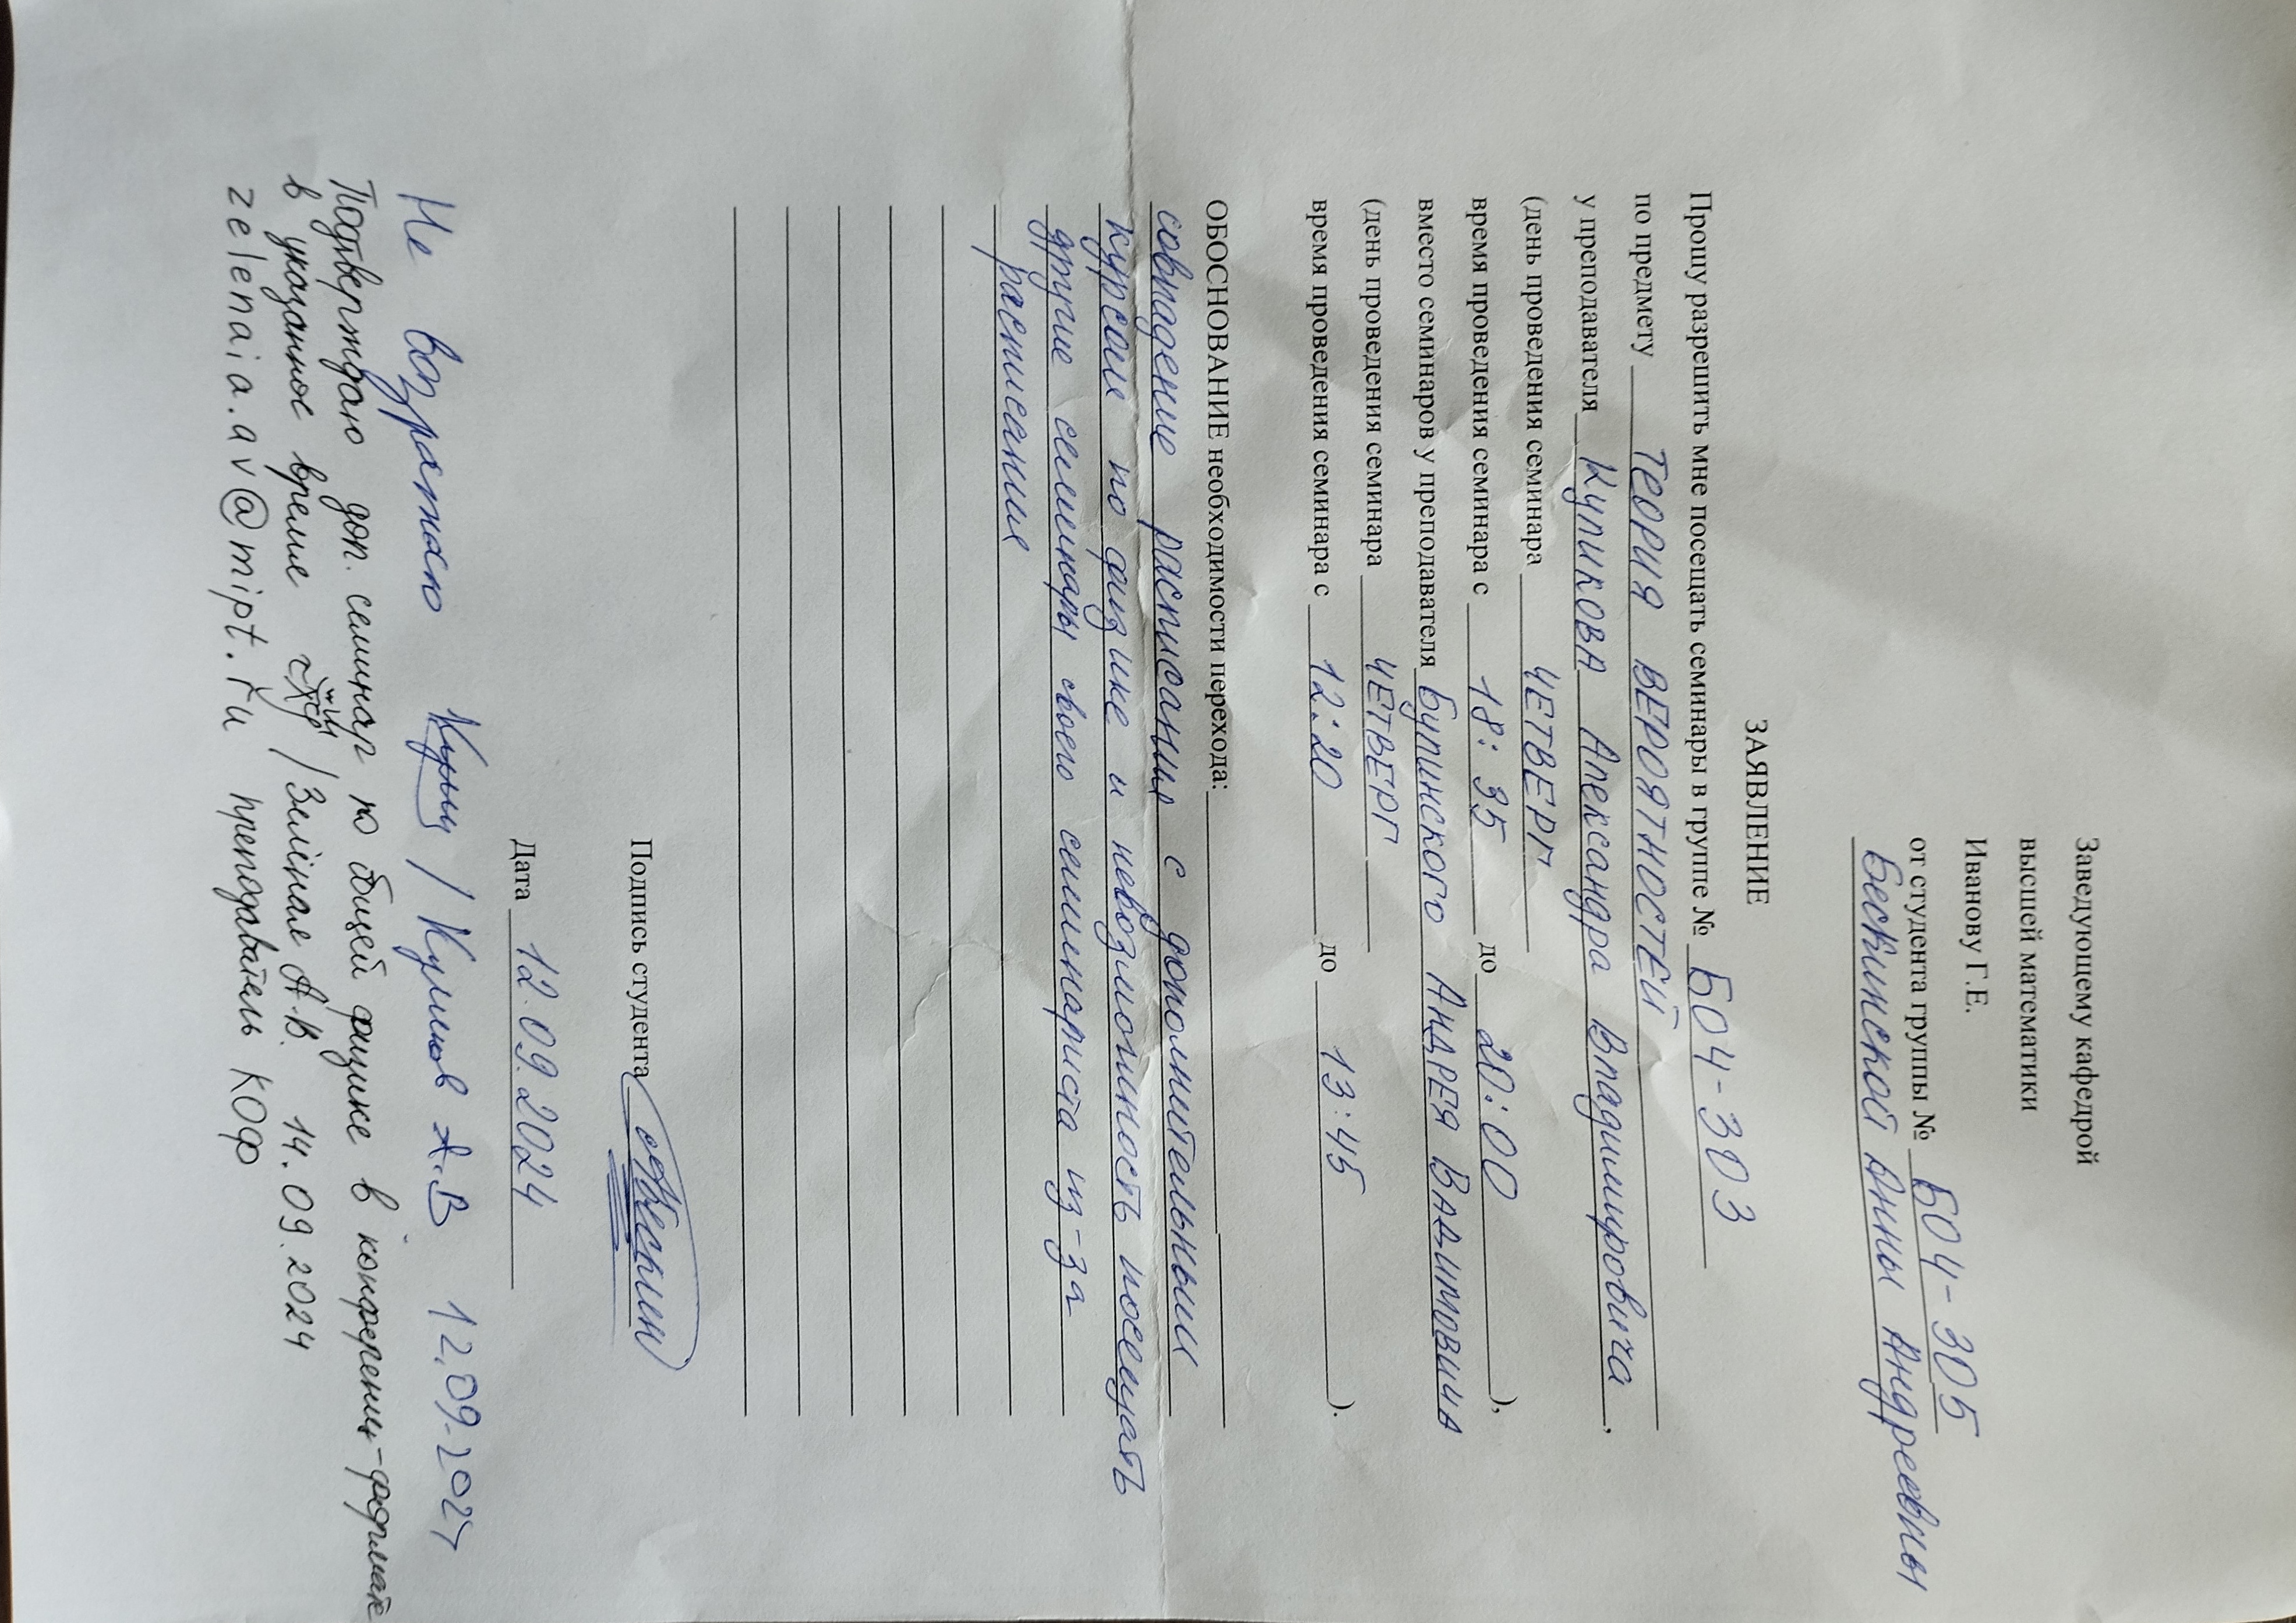 Заведующему кафедрой
высшей математики
Иванову Г.Е.
от студента группы № Б04-305
Бескинской Анны Андреевны
ЗАЯВЛЕНИЕ
Прошу разрешить мне посещать семинары в группе № Б04-303
по предмету ТЕОРИЯ ВЕРОЯТНОСТЕЙ
у преподавателя Куликова Александра Владимировича,
(день проведения семинара ЧЕТВЕРГ
время проведения семинара с 18:35 до 20:00 ),
вместо семинаров у преподавателя Булинского Андрея Вадимовича
(день проведения семинара ЧЕТВЕРГ
время проведения семинара с 12:20 до 13:45 ).
ОБОСНОВАНИЕ необходимости перехода:
совпадение расписания с дополнительным
курсом по физике и невозможность посещать
другие семинары своего семинариста из-за
расписания
Подпись студента
Дата 12.09.2024
Не возражаю / Куликов А.В 12.09.2024
Подтверждаю доп. семинар по общей физике в конференц-формате
в указанное время / Зелёная А.В. 14.09.2024
zelenaia.av@mipt.ru преподаватель КОФ